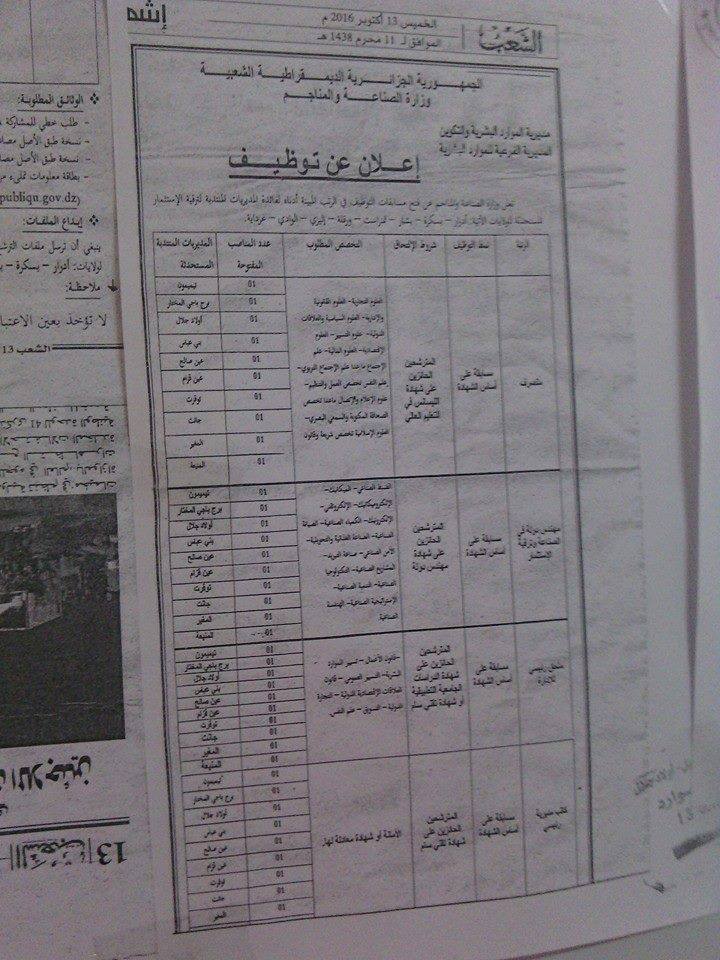 إشه
الخميس 13 أكتوبر 2016 م
الموافق لـ 11 محرم 1438 هـ
الشعب
الجمهورية الجزائرية الديمقراطية الشعبية
وزارة الصناعة والمناجم
مديرية الموارد البشرية والتكوين
المديرية الفرعية للموارد البشرية
إعلان عن توظيف
تعلن وزارة الصناعة والمناجم عن فتح مسابقات التوظيف في الرتب المبينة أدناه لفائدة المديريات المنتدبة لترقية الإستثمار
المستحدثة للولايات الآتية: أدرار – بسكرة – بشار – تمنراست – ورقلة – إليزي – الوادي – غرداية.
الرتبة
نمط التوظيف
شروط الإلتحاق
التخصص المطلوب
عدد المناصب المفتوحة
المديريات المنتدبة المستحدثة
متصرف
مسابقة على
أساس الشهادة
المترشحين
الحائزين
على شهادة
الليسانس في
التعليم العالي
العلوم التجارية- العلوم القانونية
والإدارية- العلوم السياسية والعلاقات
الدولية- علوم التسيير- العلوم
الإقتصادية- العلوم المالية- علم
الإجتماع ماعدا علم الإجتماع التربوي-
علم النفس تخصص العمل والتنظيم-
علوم الإعلام والإتصال ماعدا تخصص
الصحافة المكتوبة والسمعي البصري-
العلوم الإسلامية تخصص شريعة وقانون
01 تيميمون
01 برج باجي المختار
01 أولاد جلال
01 بني عباس
01 عين صالح
01 عين قزام
01 توقرت
01 جانت
01 المغير
01 المنيعة
مهندس دولة في
الصناعة وترقية
الإستثمار
مسابقة على
أساس الشهادة
المترشحين
الحائزين
على شهادة
مهندس دولة
الضبط الصناعي- الميكانيك-
الإلكتروميكانيك- الإلكتروتقني-
الإلكترونيك- الكيمياء الصناعية- الصيانة
الصناعية- الصناعة الغذائية والتحويلية-
الأمن الصناعي- صناعة التبريد-
المشاريع الصناعية- التكنولوجيا
الصناعية- التنمية الصناعية-
الإستراتيجية الصناعية- الهندسة
الصناعية
01 تيميمون
01 برج باجي المختار
01 أولاد جلال
01 بني عباس
01 عين صالح
01 عين قزام
01 توقرت
01 جانت
01 المغير
01 المنيعة
ملحق رئيسي
للإدارة
مسابقة على
أساس الشهادة
المترشحين
الحائزين على
شهادة الدراسات
الجامعية التطبيقية
أو شهادة تقني سام
-قانون الأعمال- تسيير الموارد
البشرية- التسيير العمومي- قانون
العلاقات الإقتصادية الدولية- التجارة
الدولية- التسويق- علم النفس.
01 تيميمون
01 برج باجي المختار
01 أولاد جلال
01 بني عباس
01 عين صالح
01 عين قزام
01 توقرت
01 جانت
01 المغير
01 المنيعة
كاتب مديرية
رئيسي
مسابقة على
أساس الشهادة
المترشحين
الحائزين على
شهادة تقني سام
الأمانة أو شهادة معادلة لها.
01 تيميمون
01 برج باجي المختار
01 أولاد جلال
01 بني عباس
01 عين صالح
01 عين قزام
01 توقرت
01 جانت
01 المغير
❖ الوثائق المطلوبة:
- طلب خطي للمشاركة
- نسخة طبق الأصل مصا
- نسخة طبق الأصل مصا
- بطاقة معلومات تملىء من
publiqu.gov.dz)
❖ إيداع الملفات:
ينبغي أن ترسل ملفات الترش
لولايات: أدرار – بسكرة –
ملاحظة:
لا تؤخذ بعين الاعتبا
الشعب 13
اللاجئين
13